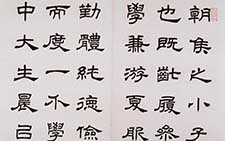 朝侯之小子
也既齔履叅
學兼游夏服
勤體純德儉
而度一不學
中大生晨㠯